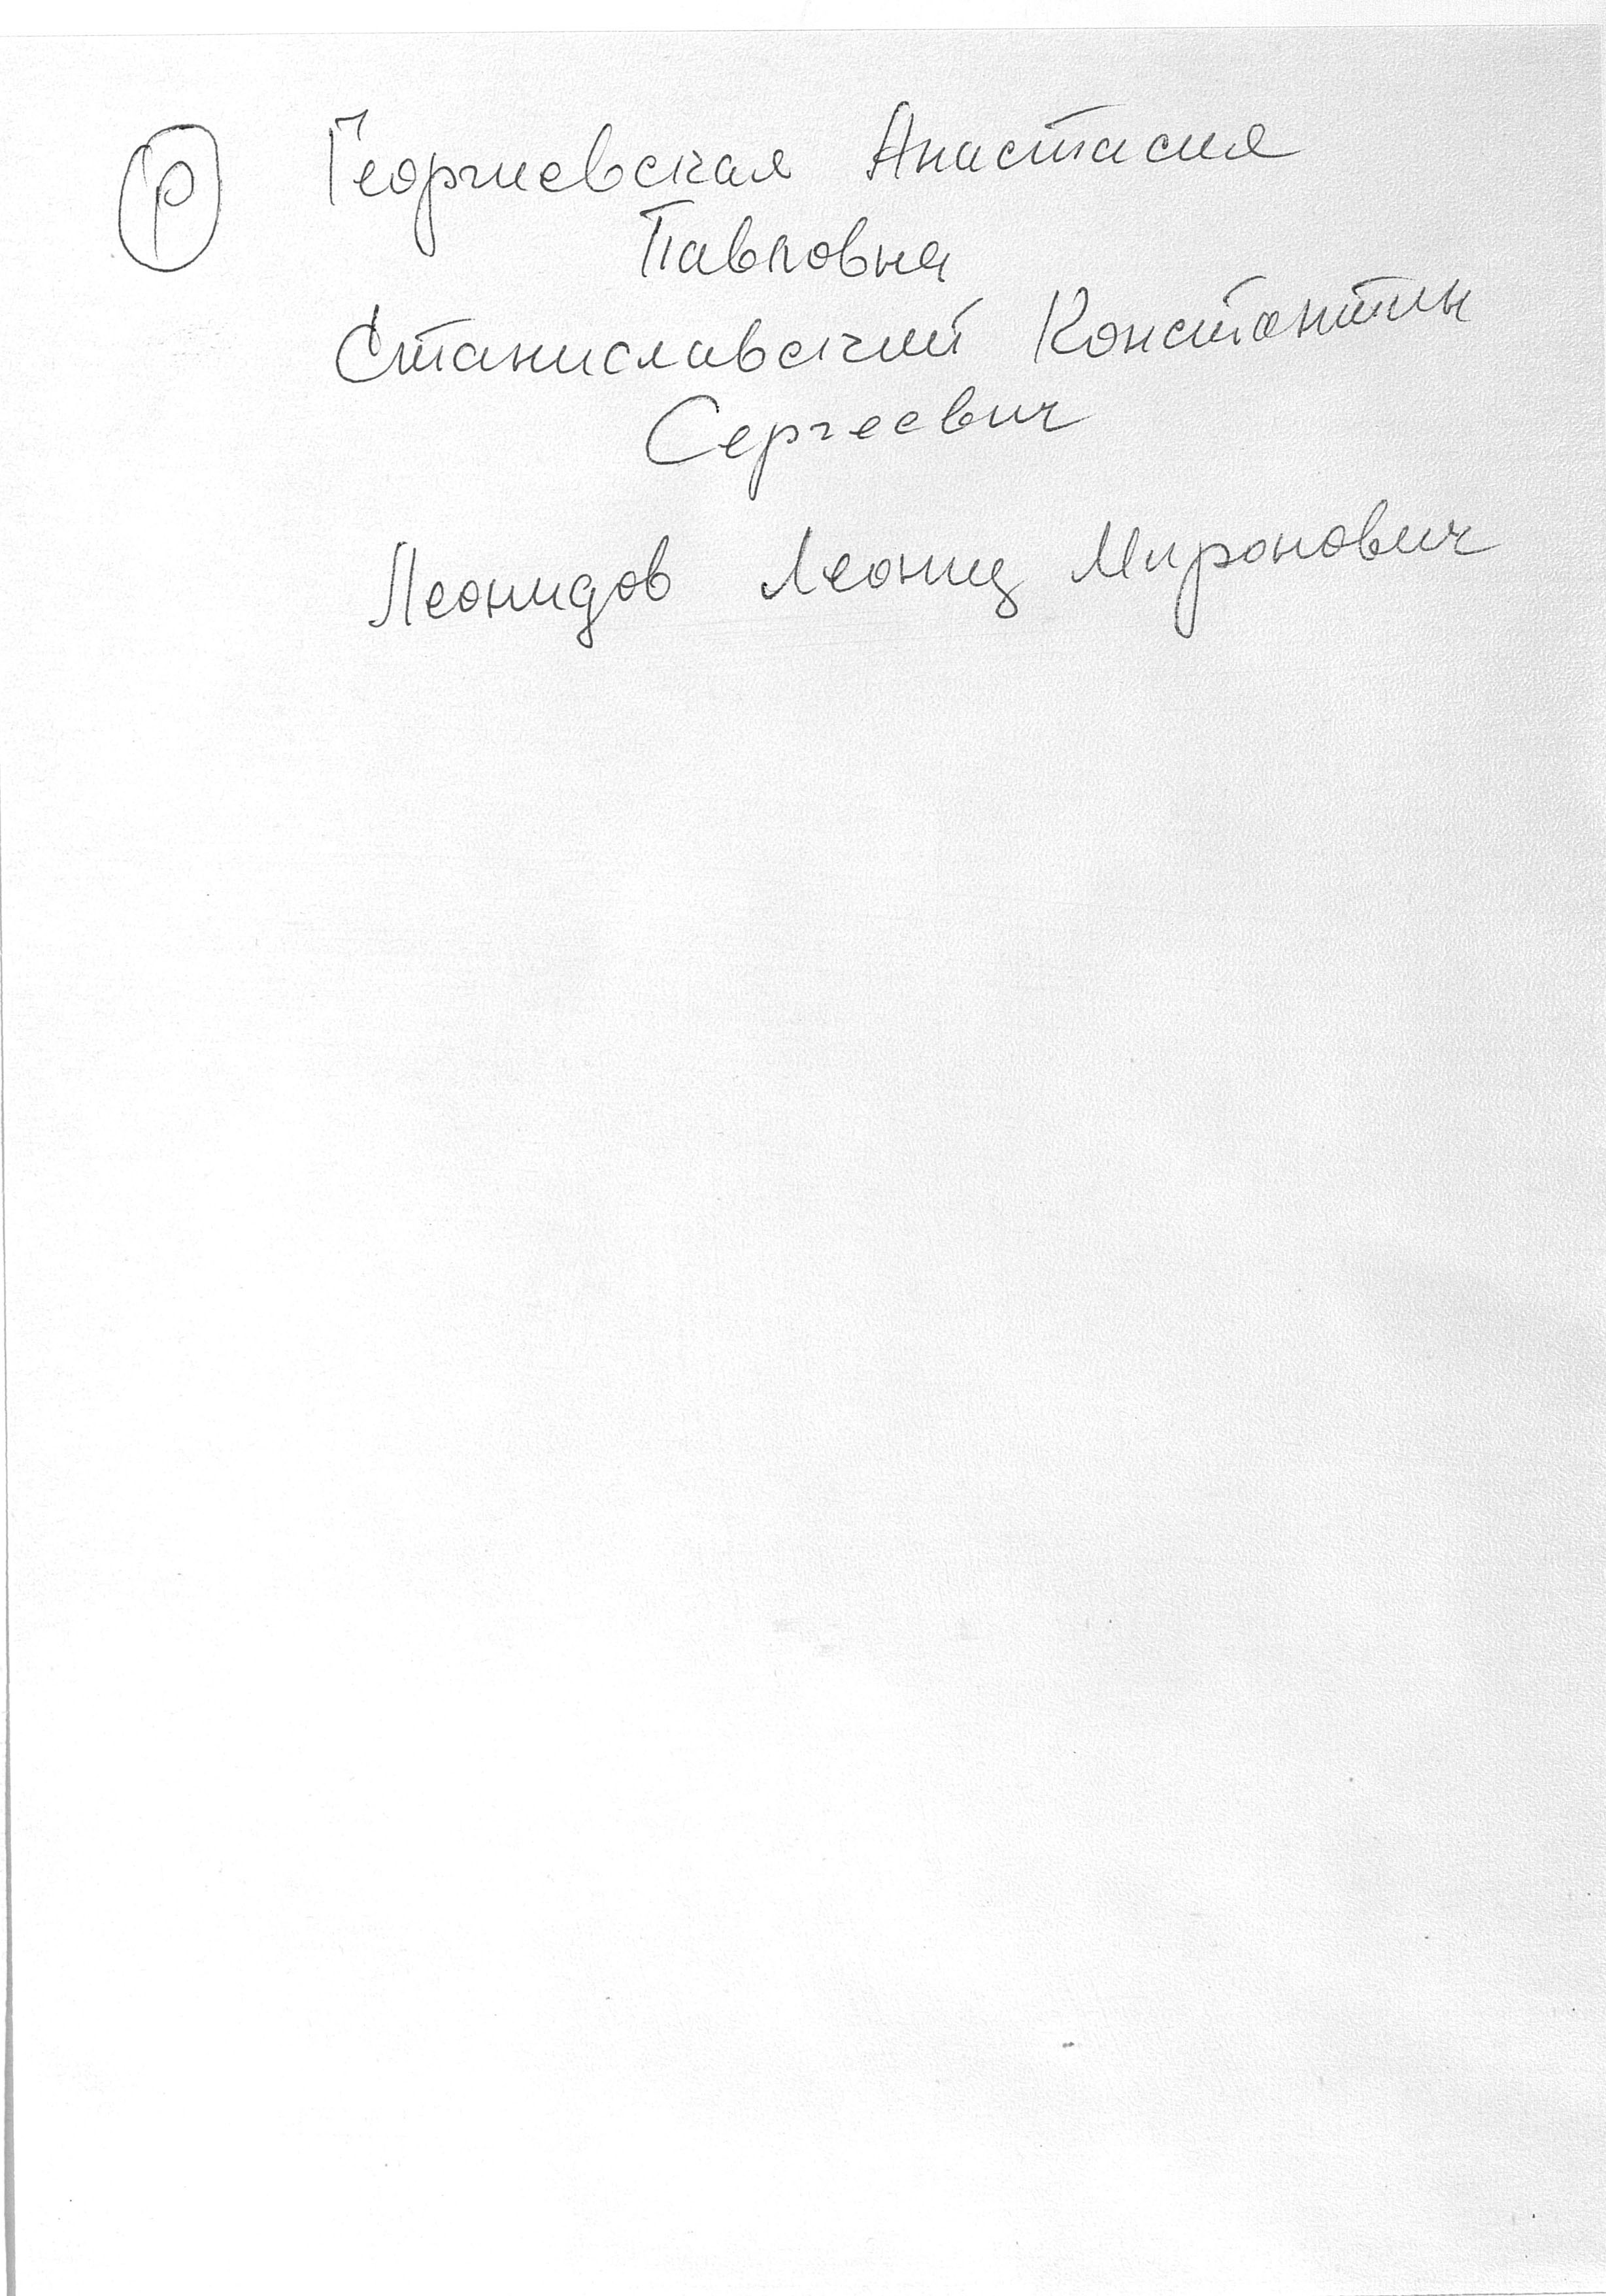 Р Георгиевская Анастасия
Павловна
Станиславский Константин
Сергеевич
Леонидов Леонид Миронович